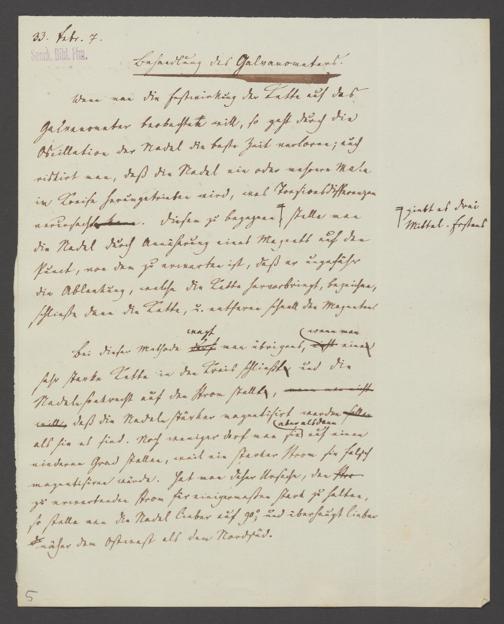 33. Febr. 7.
Senck. Bibl. Ffm.
Behandlung des Galvanometers.
Wenn man die Einwirkung der Kette auf das
Galvanometer beobachten will, so geht durch die
Oscillation der Nadel die beste Zeit verloren; auch
riskirt man, daß die Nadel ein oder mehrere Male
im Kreise herumgetrieben wird, was Torsionsdifferenzen
verursacht. Diesem zu begegnen stelle man
giebt es drei
Mittel. Erstens
die Nadel durch Annäherung eines Magnets auf den
Punct, von dem zu erwarten ist, daß er ungefähr
die Ablenkung, welche die Kette hervorbringt, bezeichne,
schließe dann die Kette, u. entferne schnell den Magneten
wagt wenn man
Bei dieser Methode darf man übrigens, eine
sehr starke Kette in den Kreis schließt und die
Nadel senkrecht auf den Strom stellt,
daß die Nadeln stärker magnetisirt werden
aber alsdann
als sie es sind. Noch weniger darf man sie auf einen
niederen Grad stellen, weil ein starker Strom sie falsch
magnetisiren würde. Hat man daher Ursache, den
zu erwartenden Strom für einigermaßen stark zu halten,
so stelle man die Nadel lieber auf 90°, und überhaupt lieber
näher dem Ostwest als dem Nordsüd.
5